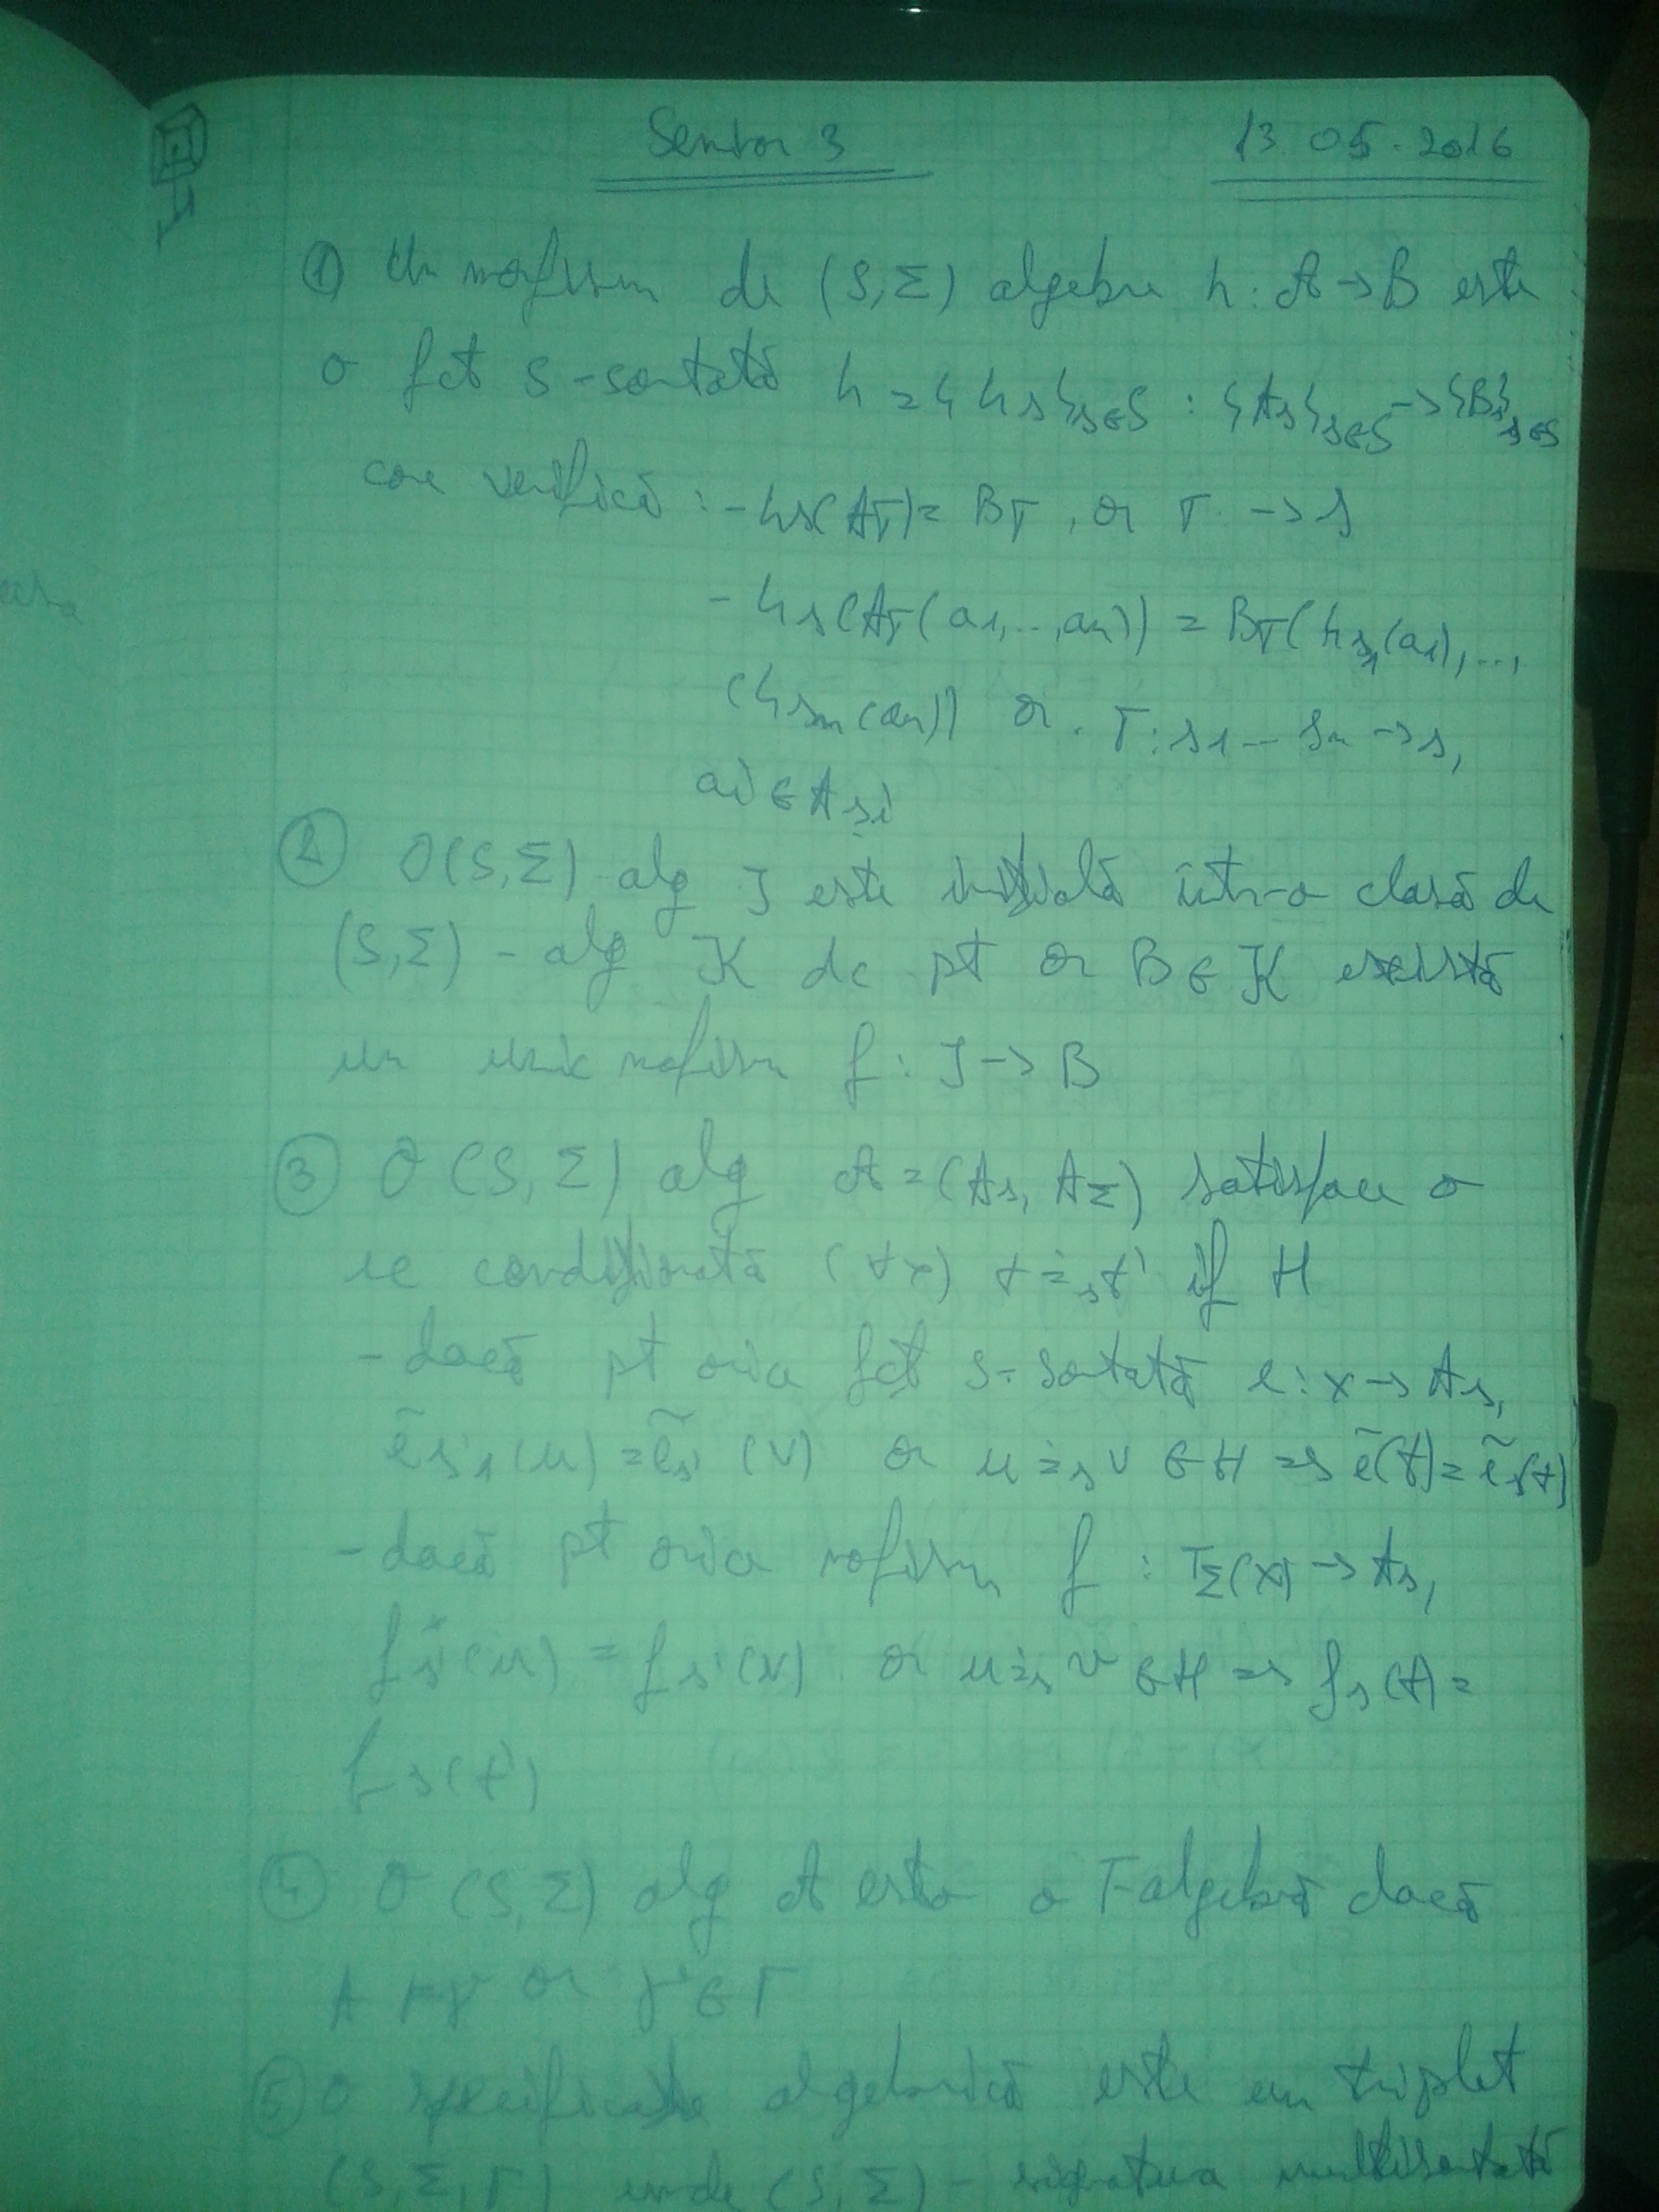 Seminar 3 13.05.2016
① Un morfism de (S,Σ) algebre h: A → B este
o fct S-sortată h = {hs}s∈S : {As}s∈S → {Bs}s∈S
care verifică: - hs(Aσ) = Bσ, or σ: → s
- hs(Aσ(a1,...,an)) = Bσ(hs1(a1),...,
(hsn(an)) or. σ: s1 ... sn → s,
ai ∈ Asi
② O (S,Σ) alg I este inițială într-o clasă de
(S,Σ) - alg K dc pt or B ∈ K există
un unic morfism f: I → B
③ O (S,Σ) alg A = (As, AΣ) satisface o
ec condiționată (∀x) t ≐s t' if H
- dacă pt orice fct S-sortată e: x → As,
ẽs'1(u) = ẽs'(v) or u ≐s v ∈ H => ẽ(t) = ẽs(t)
- dacă pt orice morfism f: TΣ(x) → As,
fs'(u) = fs'(v) or u ≐s v ∈ H => fs(t) =
fs(t')
④ O (S,Σ) alg A este o Γ-algebră dacă
A ⊨ γ or γ ∈ Γ
⑤ O specificație algebrică este un triplet
(S,Σ,Γ) unde (S,Σ) - signatura multisortată